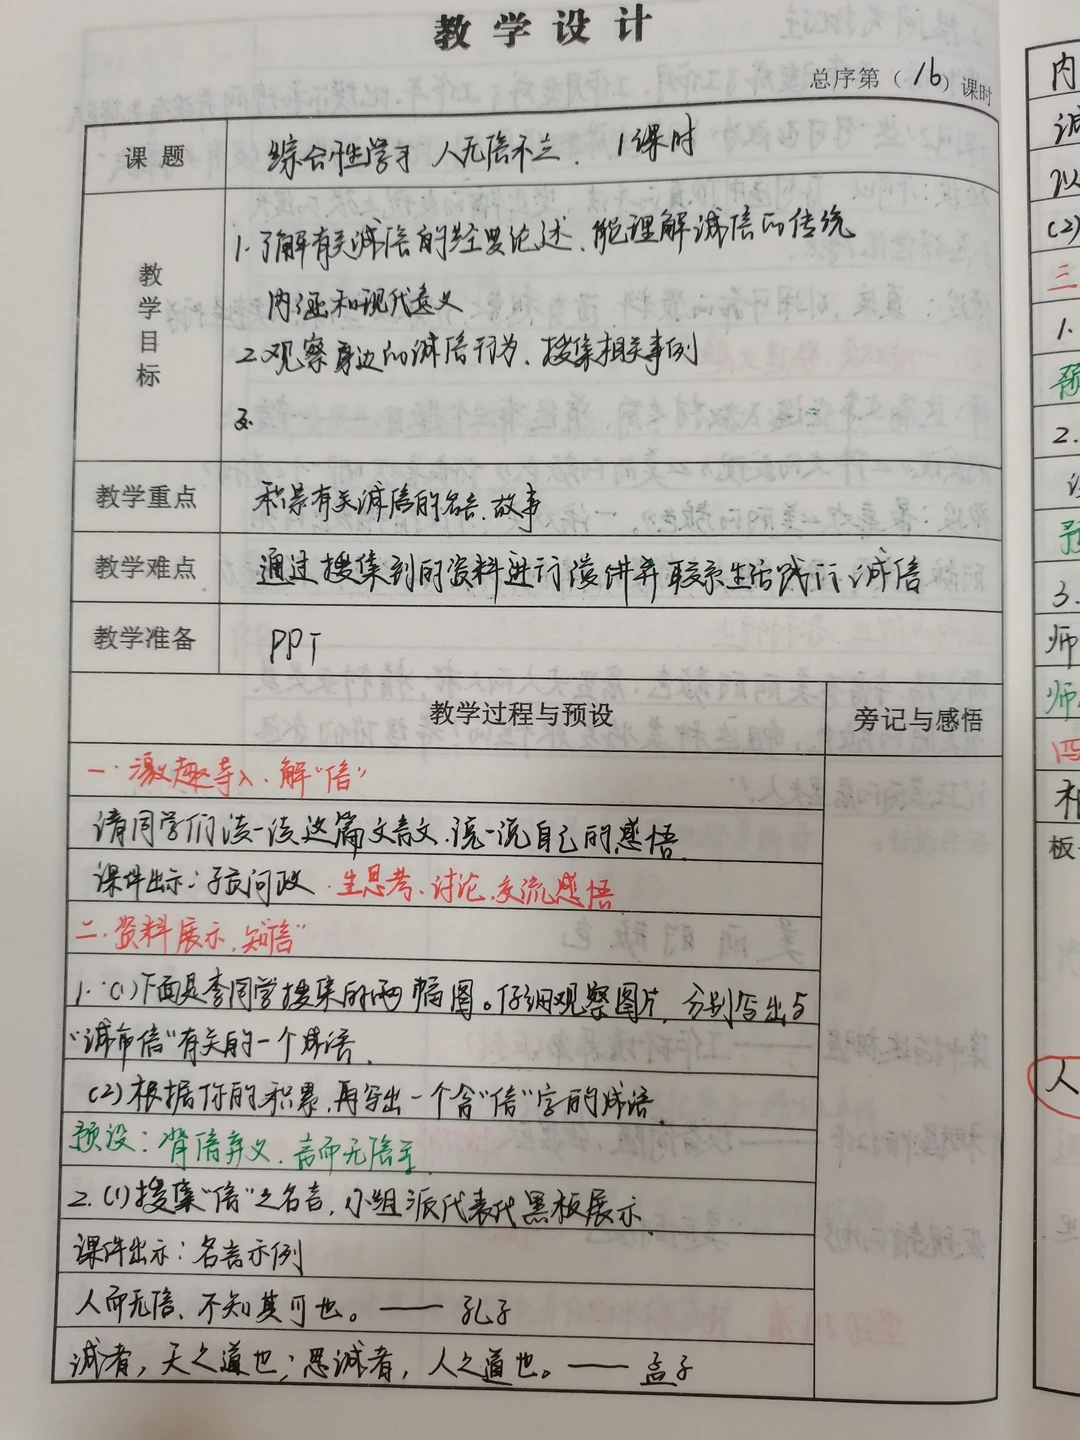 教学设计
总序第（16）课时
课题 综合性学习 人无信不立． 1课时
教学目标
1.了解有关诚信的经典论述、能理解诚信的传统
内涵和现代意义
2.观察身边的诚信行为、搜集相关事例
教学重点 积累有关诚信的名言、故事
教学难点 通过搜集到的资料进行演讲并联系生活践行诚信
教学准备 PPT
教学过程与预设 旁记与感悟
一.激趣导入、解“信”
请同学们读一读这篇文言文、说一说自己的感悟.
课件出示：子贡问政．生思考、讨论、交流感悟
二.资料展示,知“信”
1.(1)下面是李同学搜集的两幅图。仔细观察图片,分别写出与
“诚而信”有关的一个成语.
(2)根据你的积累,再写出一个含“信”字的成语.
预设：背信弃义、言而无信等
2.(1)搜集“信”之名言,小组派代表代黑板展示.
课件出示：名言示例
人而无信、不知其可也。—— 孔子
诚者,天之道也；思诚者,人之道也。—— 孟子
内
诚
以
(2)
三
1.
预
2.
预
3.
师
师
四
板
人